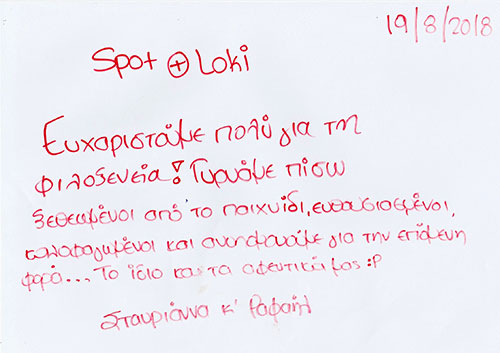 19/8/2018
Spot + Loki
Ευχαριστάμε πολύ για τη
φιλοξενεία! Γυρνάμε πίσω
ξεθεωμένοι από το παιχνίδι, ενθουσιασμένοι,
και ανυπομονούμε για την επόμενη
φορά... Το ίδιο και τα αφεντικά μας :P
Σταυριάννα κ' Ραφαήλ